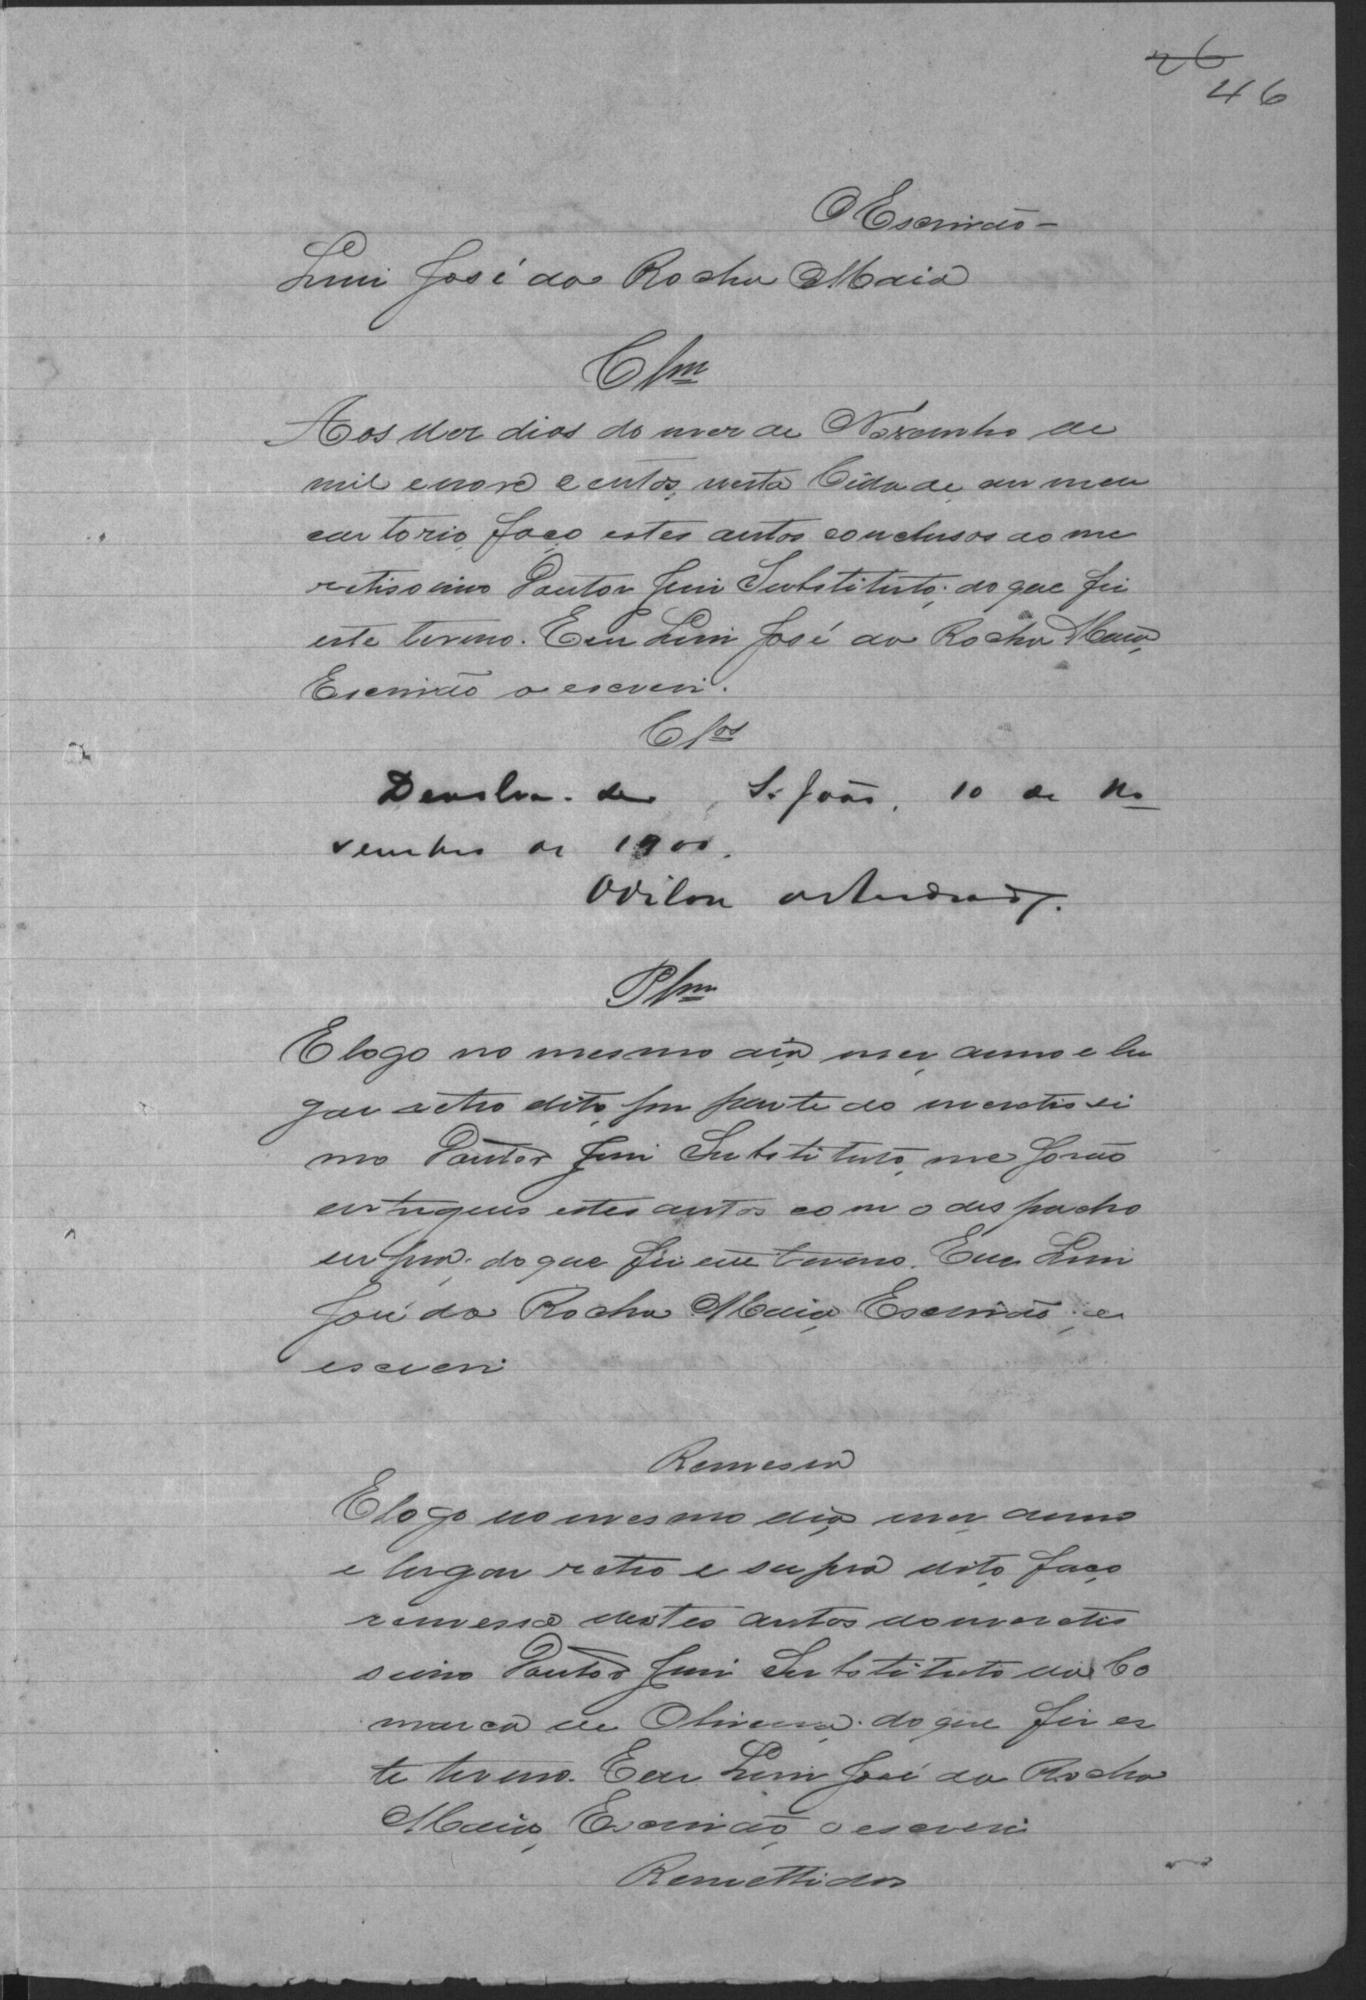 26
46
O Escrivão –
Luiz José da Rocha Maia
Clm
Aos dez dias do mez de Novembro de
mil e nove centos, nesta Cidade, em meu
cartorio, faço estes autos conclusos ao me
retissimo Doutor Juiz Substituto; do que fiz
este termo. Eu Luiz José da Rocha Maia,
Escrivão o escrevi.
Clos
Devolva-se, S. João, 10 de No
vembro de 1900.
Odilon de Andrade.
Plm
E logo no mesmo dia, mez, anno e lu
gar retro dito, por parte do meretissi
mo Doutor Juiz Substituto, me forão
entregues estes autos com o despacho
supra; do que fiz este termo. Eu Luiz
José da Rocha Maia, Escrivão, o
escrevi
Remessa
E logo no mesmo dia, mez, anno
e lugar retro e supra dito, faço
remessa destes autos ao meretis
simo Doutor Juiz Substituto da Co
marca de Oliveira; do que fiz es
te termo. Eu Luiz José da Rocha
Maia, Escrivão, o escrevi
Remettidos